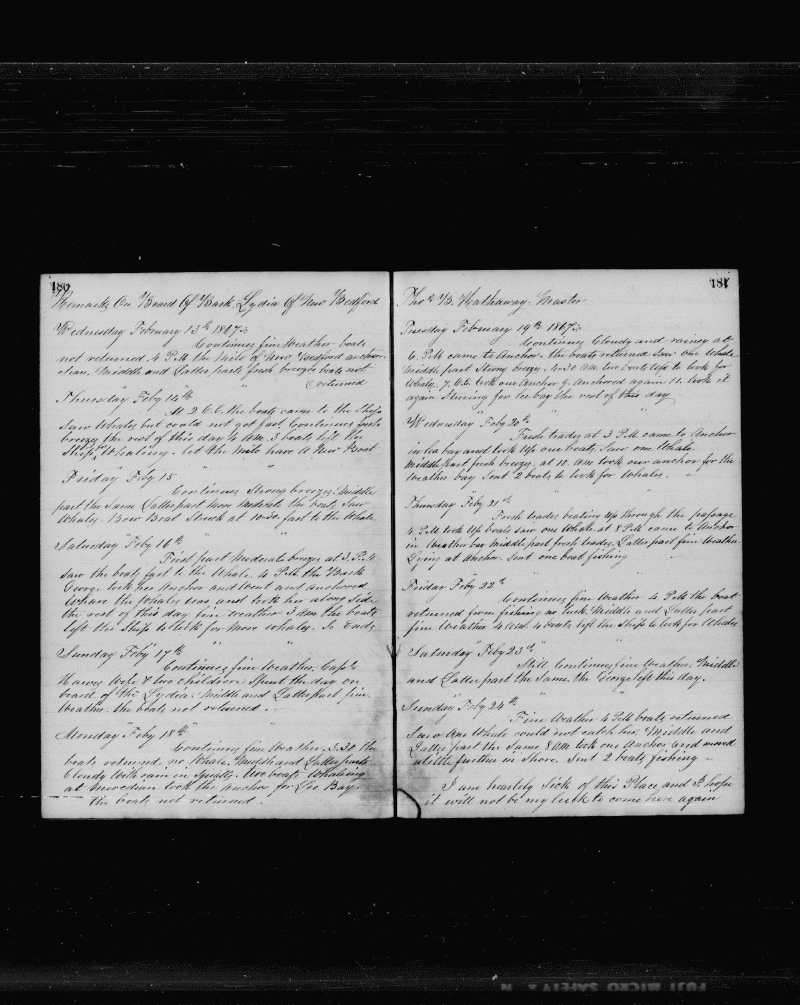 180
Remarks On Board Of Bark Lydia Of New Bedford
Wednesday February 13th 1867
Continues fine Weather boats
not returned. 4 P.M the Milo of New Bedford anchor
clean. Middle and Latter parts fresh breezes boats not
returned
Thursday Feby 14th " "
At 2 the boats came to the Ship
Saw Whales but could not get fast Continues fresh
breezes the rest of this day 4 AM. 3 boats left the
Ship Whaling. let the Milo have A New Boat
Friday Feby 15 " "
Continues Strong breezes Middle
part the Same Latter part more Moderate the boats Saw
Whales. Bow Boat Struck at 10 fast to the Whale
Saturday Feby 16th " "
First part Moderate breezes at 3. P.M
Saw the boats fast to the Whale. 4 P.M. the Bark
George took her Anchor and Went and anchored
Where the Whale was and took her along Side
the rest of this day fine weather 5 AM the boats
left the Ship to look for More Whales. So Ends
Sunday Feby 17th " "
Continues fine Weather. Capt
Wife & two children Spent the day on
board of the Lydia. Middle and Latter part fine
Weather. the boats not returned.
Monday Feby 18th "
Continues fine Weather. 3.30 the
boats returned, no Whale. Middle and Latter parts
Cloudy With rain in Squalls, two boats Whaling
at Meredian took the Anchor for Lee Bay.
the boats not returned.
181
Thos B. Hathaway. Master
Tuesday February 19th 1867
Continues Cloudy and rainey at
6. P.M came to Anchor. the boats returned Saw one Whale
Middle part Strong breezes. 4.30 A.M. two boats Left to look for
Whales. 7. took our Anchor 9. Anchored again 11. took it
again Steering for Lee bay the rest of this day
Wednesday Feby 20th " "
Fresh trades at 3 P.M. came to Anchor
in lea bay and took Up our boats, Saw one Whale.
Middle part fresh breezes, at 10. AM took our anchor for the
Weather bay Sent 2 boats to look for Whales. "
Thursday Feby 21st
Fresh trades, beating Up through the passage
4 P.M. took Up boats saw one Whale. at 8 P.M came to Anchor
in Weather bay Middle part fresh trades, Latter part fine Weather
Lying at Anchor. Sent one boat fishing
Friday Feby 22d "
Continues fine Weather 4 P.M the boat
returned from fishing no luck. Middle and Latter part
fine Weather 4 A.M. 4 boats left the Ship to look for Whales
Saturday Feby 23d " "
Still Continues fine Weather. Middle
and Latter part the Same. the George left this day.
Sunday Feby 24th " "
Fine Weather 4 P.M boats returned
Saw One Whale could not catch her. Middle and
Latter part the Same 8 AM took our Anchor and moved
alittle further in Shore. Sent 2 boats fishing
I am heartely Sick of this Place and I hope
it will not be my luck to come here again
FUJI MICRO SAFETY